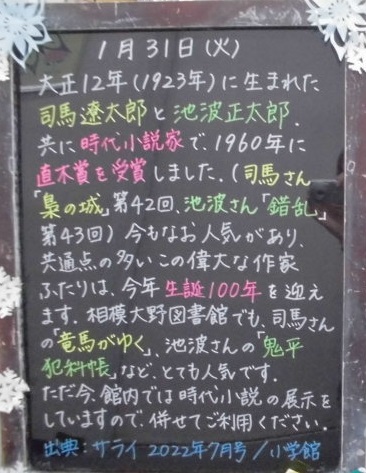 1月31日(火)
大正12年(1923年)に生まれた
司馬遼太郎と池波正太郎.
共に時代小説家で、1960年に
直木賞を受賞しました.(司馬さん
「梟の城」第42回、池波さん「錯乱」
第43回)今もなお人気があり、
共通点の多いこの偉大な作家
ふたりは、今年生誕100年を迎え
ます.相模大野図書館でも、司馬さん
の「竜馬がゆく」、池波さんの「鬼平
犯科帳」など、とても人気です.
ただ今、館内では時代小説の展示を
していますので、併せてご利用ください.
出典:サライ2022年7月号/小学館